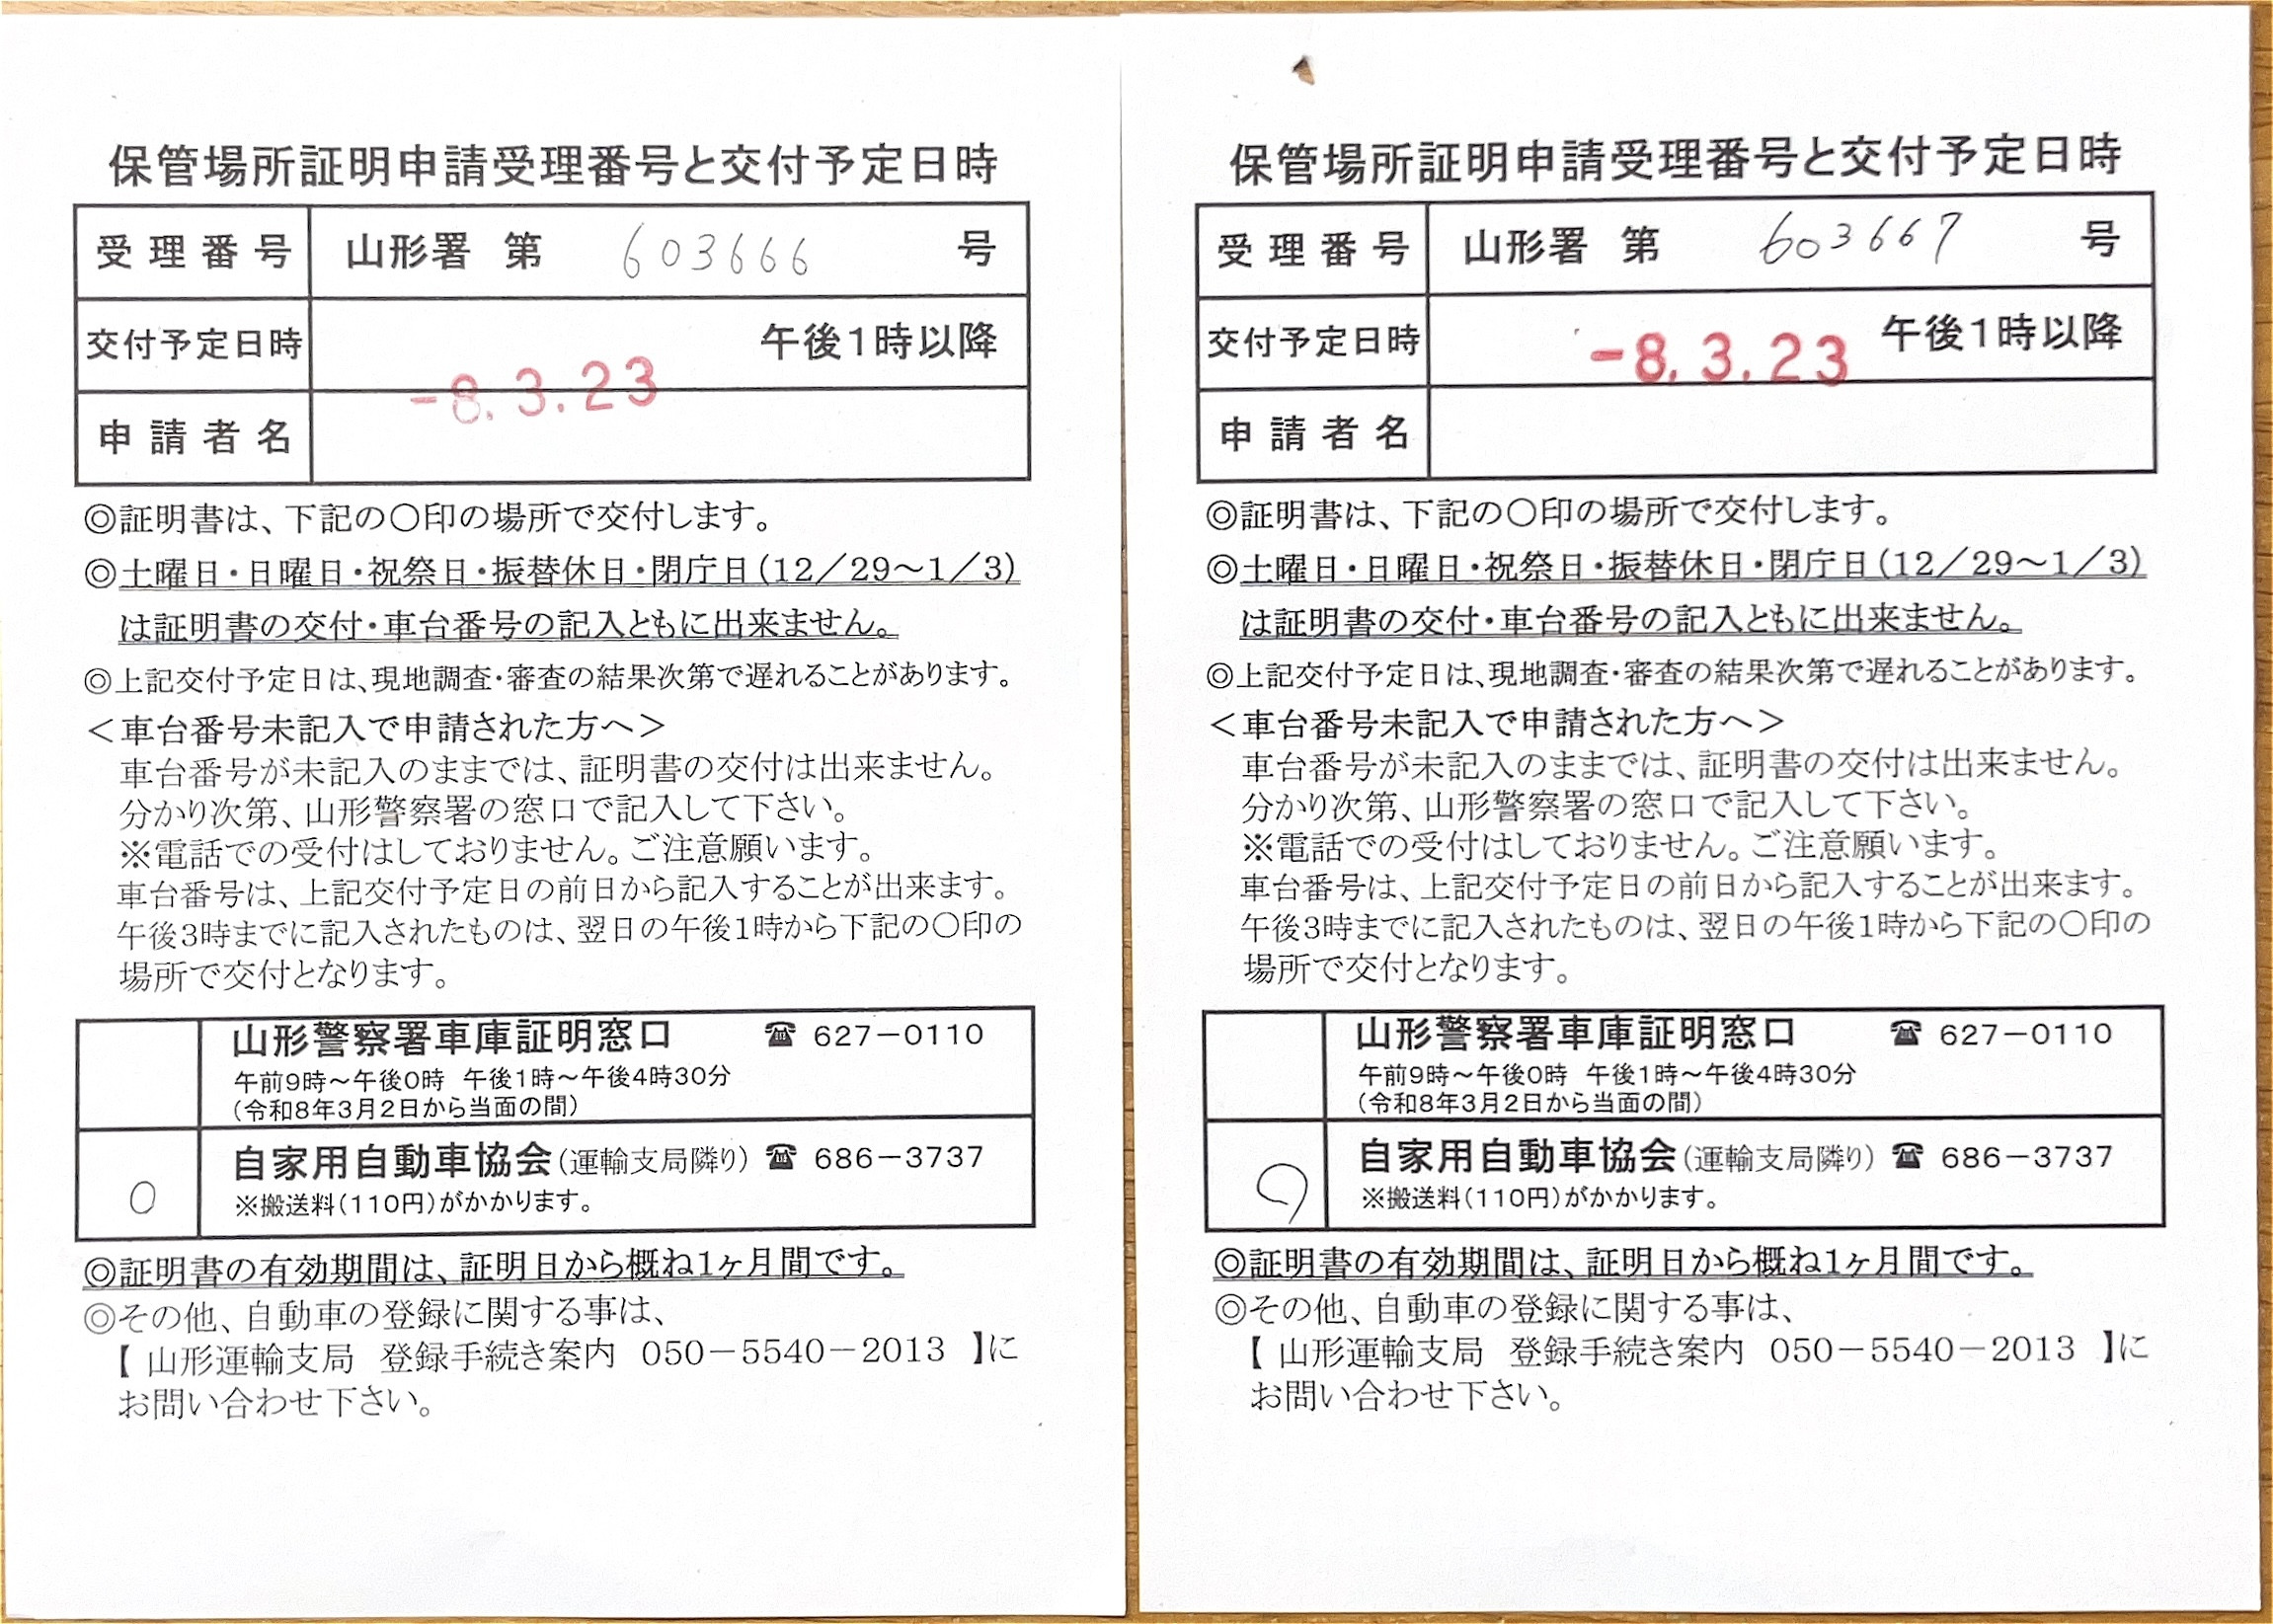 保管場所証明申請受理番号と交付予定日時
受理番号 山形署 第 603666 号
交付予定日時 午後1時以降
-8.3.23
申請者名
◎証明書は、下記の〇印の場所で交付します。
◎土曜日・日曜日・祝祭日・振替休日・閉庁日(12/29～1/3)
は証明書の交付・車台番号の記入ともに出来ません。
◎上記交付予定日は、現地調査・審査の結果次第で遅れることがあります。
＜車台番号未記入で申請された方へ＞
車台番号が未記入のままでは、証明書の交付は出来ません。
分かり次第、山形警察署の窓口で記入して下さい。
※電話での受付はしておりません。ご注意願います。
車台番号は、上記交付予定日の前日から記入することが出来ます。
午後3時までに記入されたものは、翌日の午後1時から下記の〇印の
場所で交付となります。
山形警察署車庫証明窓口 ☎ 627－0110
午前9時～午後0時 午後1時～午後4時30分
(令和8年3月2日から当面の間)
〇 自家用自動車協会(運輸支局隣り) ☎ 686－3737
※搬送料(110円)がかかります。
◎証明書の有効期間は、証明日から概ね1ヶ月間です。
◎その他、自動車の登録に関する事は、
【 山形運輸支局 登録手続き案内 050－5540－2013 】に
お問い合わせ下さい。
保管場所証明申請受理番号と交付予定日時
受理番号 山形署 第 603667 号
交付予定日時 -8.3.23 午後1時以降
申請者名
◎証明書は、下記の〇印の場所で交付します。
◎土曜日・日曜日・祝祭日・振替休日・閉庁日(12/29～1/3)
は証明書の交付・車台番号の記入ともに出来ません。
◎上記交付予定日は、現地調査・審査の結果次第で遅れることがあります。
＜車台番号未記入で申請された方へ＞
車台番号が未記入のままでは、証明書の交付は出来ません。
分かり次第、山形警察署の窓口で記入して下さい。
※電話での受付はしておりません。ご注意願います。
車台番号は、上記交付予定日の前日から記入することが出来ます。
午後3時までに記入されたものは、翌日の午後1時から下記の〇印の
場所で交付となります。
山形警察署車庫証明窓口 ☎ 627－0110
午前9時～午後0時 午後1時～午後4時30分
(令和8年3月2日から当面の間)
〇 自家用自動車協会(運輸支局隣り) ☎ 686－3737
※搬送料(110円)がかかります。
◎証明書の有効期間は、証明日から概ね1ヶ月間です。
◎その他、自動車の登録に関する事は、
【 山形運輸支局 登録手続き案内 050－5540－2013 】に
お問い合わせ下さい。